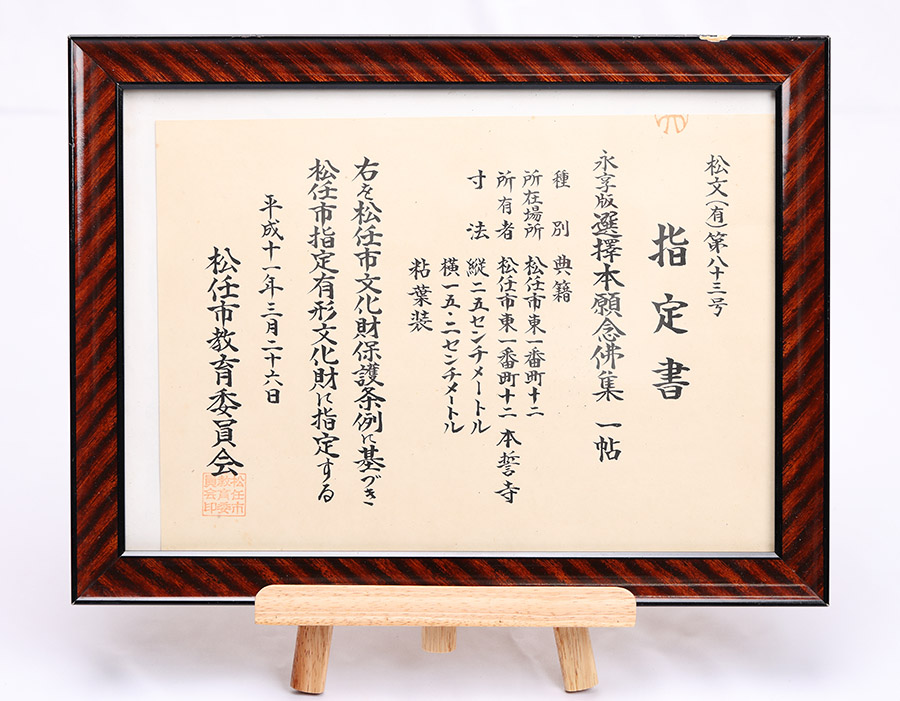 松文(有)第八十三号
指定書
永享版選擇本願念佛集 一帖
種別 典籍
所在場所 松任市東一番町十二
所有者 松任市東一番町十二 本誓寺
寸法 縦二五センチメートル
横一五・二センチメートル
粘葉装
右を松任市文化財保護条例に基づき
松任市指定有形文化財に指定する
平成十一年三月二十六日
松任市教育委員会
松任市
教育委
員会印